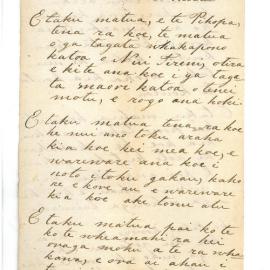 E taku matua, e te Pihopa,
tena ra koe, te matua
o ga tagata whakapono
katoa o Niu Tireni, otira
e kite ana koe i ga taga
ta maori katoa o tenei
motu, e rogo ana hoki.
E taku matua tena ra koe
he nui ano toku aroha
kia koe kei mea koe, e
wareware ana koe i
roto i toku gakau, kaho
re e kore au e wareware
kia koe ake tonu atu
E taku matua pai ko te
ko te whamahi ra kei
runga moku a te ra whe
kawa, e ora ai ahau i